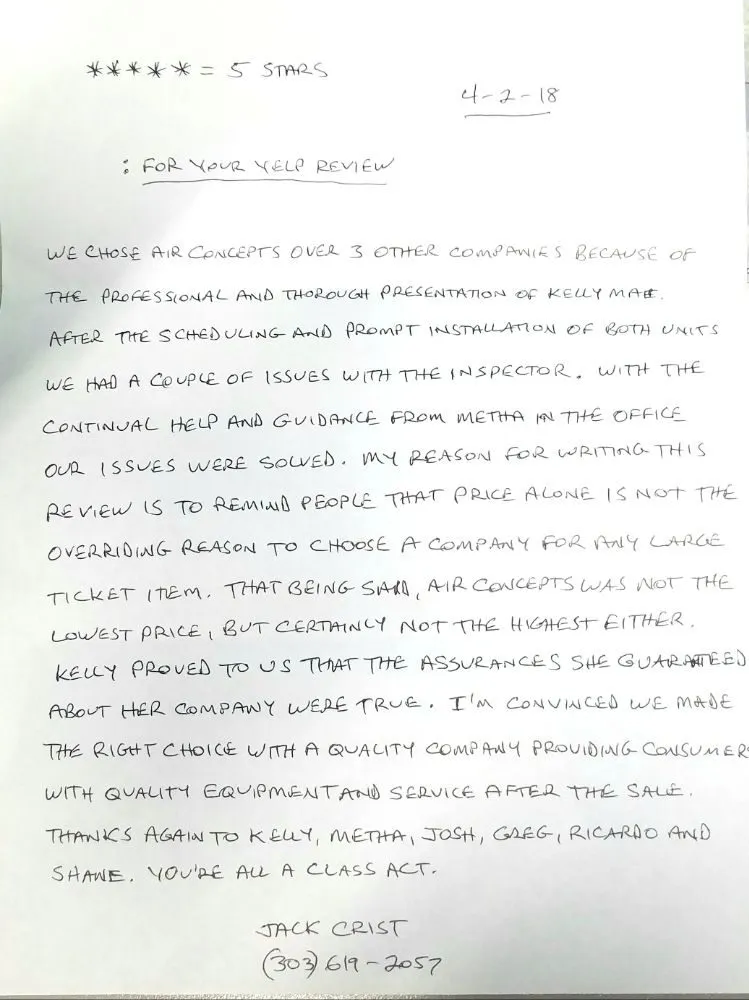 ***** = 5 STARS
4-2-18
: FOR YOUR YELP REVIEW
WE CHOSE AIR CONCEPTS OVER 3 OTHER COMPANIES BECAUSE OF
THE PROFESSIONAL AND THOROUGH PRESENTATION OF KELLY
AFTER THE SCHEDULING AND PROMPT INSTALLATION OF BOTH UNITS
WE HAD A COUPLE OF ISSUES WITH THE INSPECTOR. WITH THE
CONTINUAL HELP AND GUIDANCE FROM METHA IN THE OFFICE
OUR ISSUES WERE SOLVED. MY REASON FOR WRITING THIS
REVIEW IS TO REMIND PEOPLE THAT PRICE ALONE IS NOT THE
OVERRIDING REASON TO CHOOSE A COMPANY FOR ANY LARGE
TICKET ITEM. THAT BEING SAID, AIR CONCEPTS WAS NOT THE
LOWEST PRICE, BUT CERTAINLY NOT THE HIGHEST EITHER.
KELLY PROVED TO US THAT THE ASSURANCES SHE GUARANTEED
ABOUT HER COMPANY WERE TRUE. I'M CONVINCED WE MADE
THE RIGHT CHOICE WITH A QUALITY COMPANY PROVIDING CONSUMERS
WITH QUALITY EQUIPMENT AND SERVICE AFTER THE SALE.
THANKS AGAIN TO KELLY, METHA, JOSH, GREG, RICARDO AND
SHANE. YOU'RE ALL A CLASS ACT.
JACK CRIST
(303) 619-2057